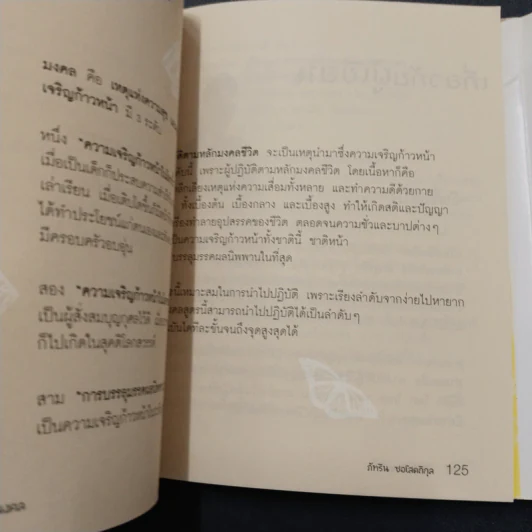 มงคล คือ เหตุแห่งความสุข
เจริญก้าวหน้า มี ๓ ระดับ
หนึ่ง "ความเจริญก้าวหน้า
เมื่อเป็นเด็กก็ประสบความสำเร็จ
เล่าเรียน เมื่อเติบโตขึ้นก็
ได้ทำประโยชน์แก่ตนเอง
มีครอบครัวอบอุ่น
สอง "ความเจริญก้าวหน้า
เป็นผู้สั่งสมบุญกุศลไว้ดี
ก็ไปเกิดในสุคติโลกสวรรค์
สาม "การบรรลุมรรคผลนิพพาน
เป็นความเจริญก้าวหน้า
ติตามหลักมงคลชีวิต จะเป็นเหตุนำมาซึ่งความเจริญก้าวหน้า
ดับนี้ เพราะผู้ปฏิบัติตามหลักมงคลชีวิต โดยเนื้อหาก็คือ
หลีกเลี่ยงเหตุแห่งความเสื่อมทั้งหลาย และทำความดีด้วยกาย
ทั้งเบื้องต้น เบื้องกลาง และเบื้องสูง ทำให้เกิดสติและปัญญา
เครื่องทำลายอุปสรรคของชีวิต ตลอดจนความชั่วและบาปต่างๆ
เป็นความเจริญก้าวหน้าทั้งชาตินี้ ชาติหน้า
บรรลุมรรคผลนิพพานในที่สุด
นี้เหมาะสมในการนำไปปฏิบัติ เพราะเรียงลำดับจากง่ายไปหายาก
คลสูตรนี้สามารถนำไปปฏิบัติได้เป็นลำดับๆ
ไปทีละขั้นจนถึงจุดสูงสุดได้
125